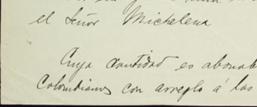 el Señor Michelena
Cuya cantidad es abonab
Colombianos con arreglo á los